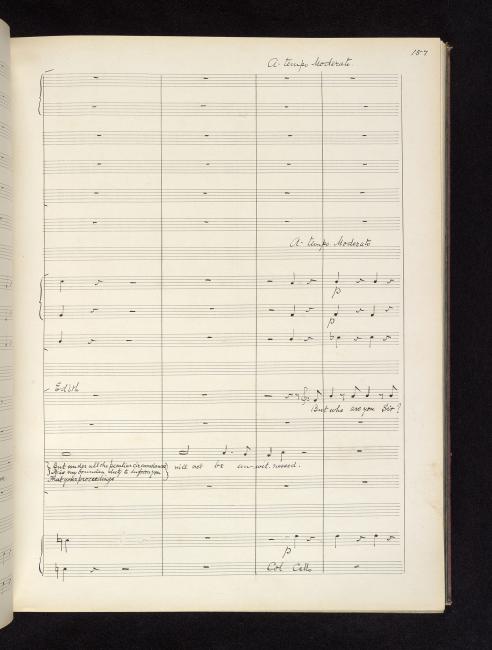 157
A tempo Moderato
A tempo Moderato
p
p
Edith
But who are you Sir?
But under all the peculiar circumstances
It is my bounden duty to inform you
That your proceedings
will not be un-wit-nessed.
p
Col Cello